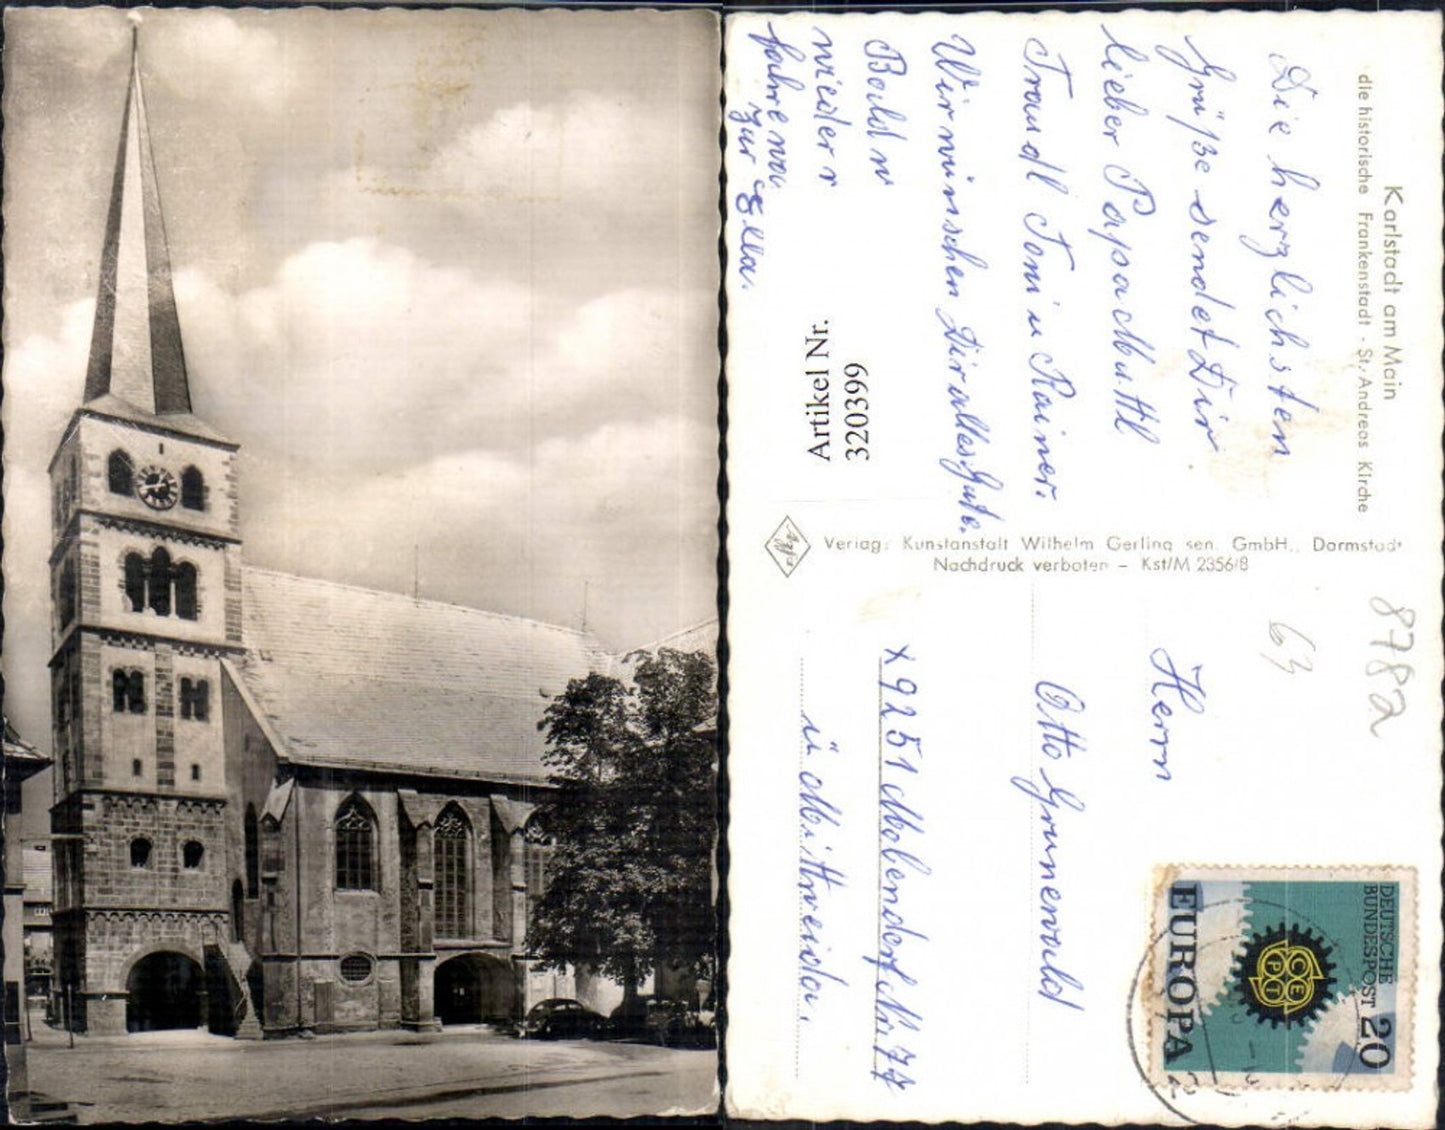 Karlstadt am Main
die historische Frankenstadt - St. Andreas Kirche
Die herzlichsten
Grüße sendet Dir
lieber Papa Mutti
Traudl Toni u Rainer.
Wir wünschen Dir alles Gute.
Bald
wieder
fahre
zur Ella.
Artikel Nr.
3203399
Agfa
Verlag: Kunstanstalt Wilhelm Gerling sen. GmbH., Darmstadt
Nachdruck verboten – Kst/M 2356/8
8782
63
Herrn
Otto Grunewald
x 9251 Mobendorf Nr. 77
ü. Mittweida.
DEUTSCHE
BUNDESPOST 20
CEPT
EUROPA